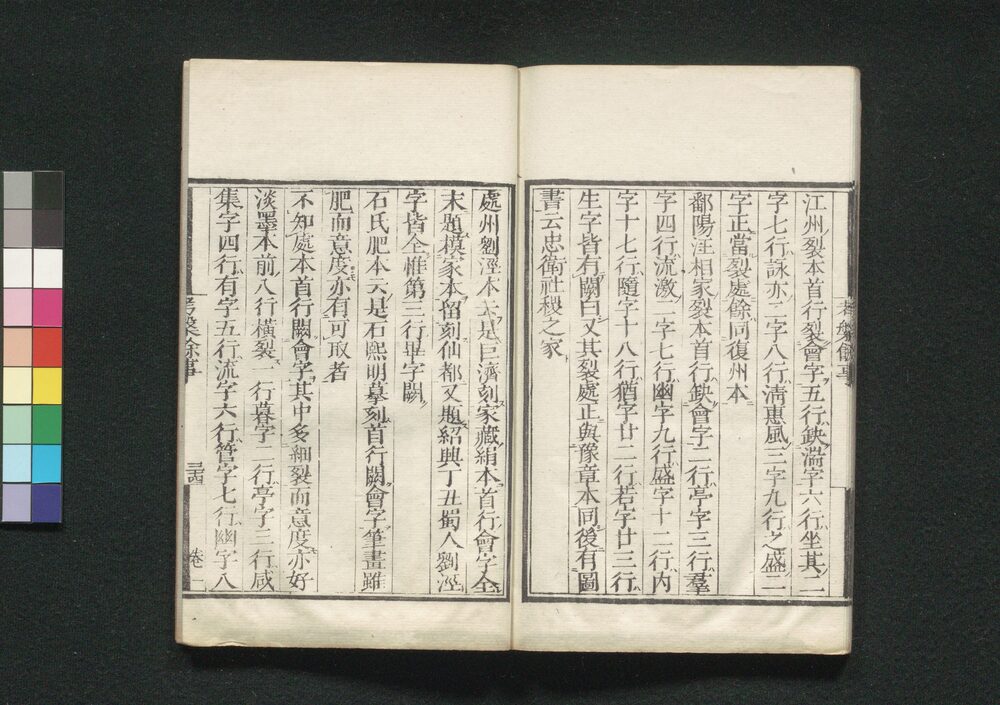 江州裂本首行裂會字五行缺湍字六行坐其二
字七行詠亦二字八行淸惠風三字九行之盛二
字正當裂處餘同復州本
鄱陽汪相家裂本首行缺會字二行亭字三行羣
字四行流激二字七行幽字九行盛字十二行内
字十七行隨字十八行猶字廿二行若字廿三行
生字皆有闕白又其裂處正與豫章本同後有圖
書云忠衛社稷之家
處州劉涇本云是巨濟刻家藏絹本首行會字全
末題模家本留刻仙都又題紹興丁丑蜀人劉涇
字皆全惟第三行畢字闕
石氏肥本云是石熙明摹刻首行闕會字筆畫雖
肥而意度亦有可取者
不知處本首行闕會字其中多細裂而意度亦好
淡墨本前八行橫裂一行暮字二行亭字三行咸
集字四行有字五行流字六行管字七行幽字八
考槃餘事
三四
卷一